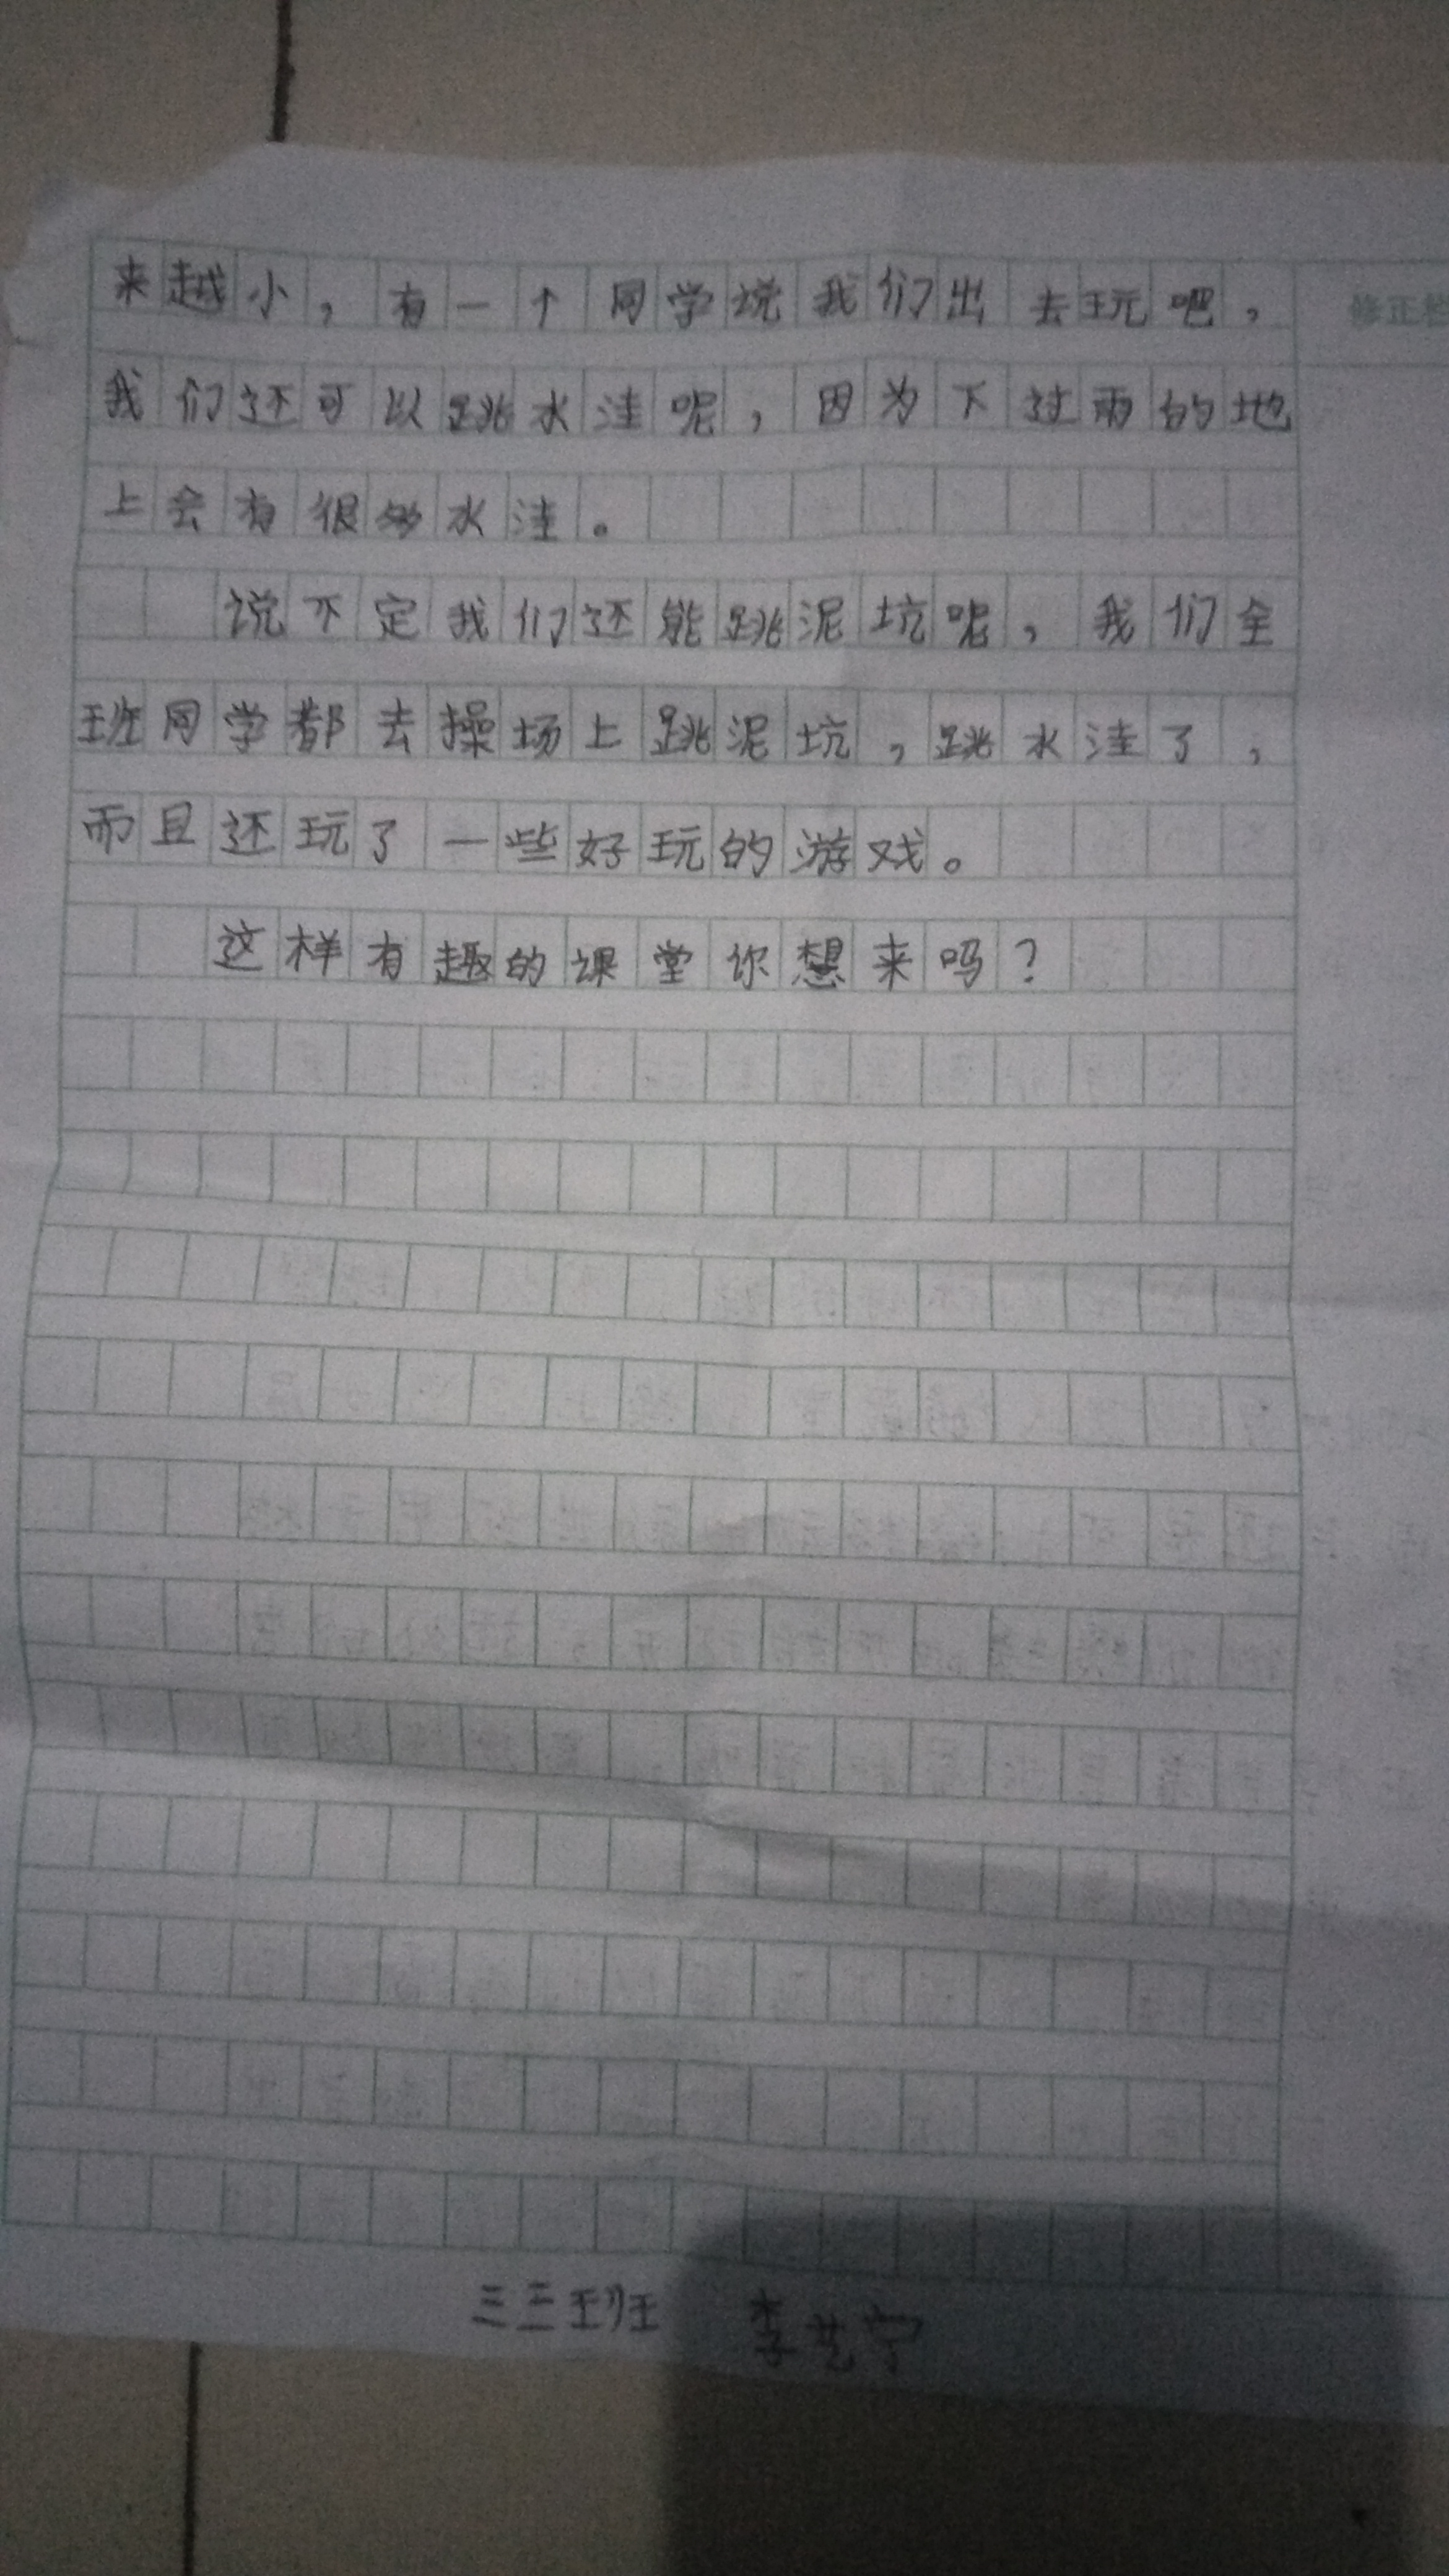 来越小，有一个同学说我们出去玩吧，
修正栏
我们还可以跳水洼呢，因为下过雨的地
上会有很多水洼。
说不定我们还能跳泥坑呢，我们全
班同学都去操场上跳泥坑，跳水洼了，
而且还玩了一些好玩的游戏。
这样有趣的课堂你想来吗？
三三班 李艺宁